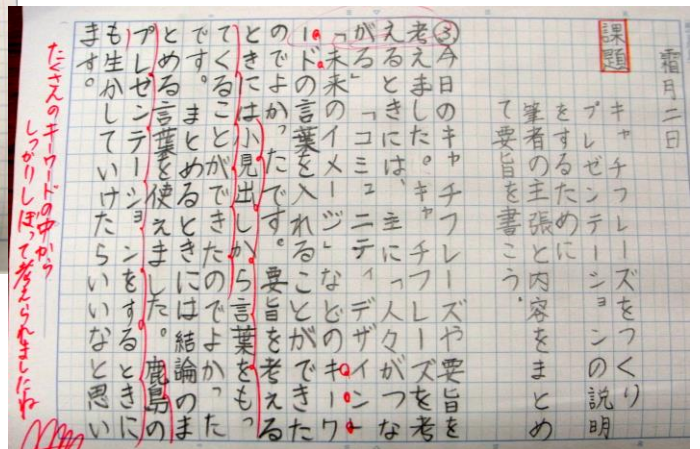 霜月二日
課題
キャッチフレーズをつくり
プレゼンテーションの説明
をするために
筆者の主張と内容をまとめ
て要旨を書こう。
③今日のキャチフレーズや要旨を
考えました。キャチフレーズを考
えるときには、主に「人々がつな
がる」「コミュニティデザイン」
「未来のイメージ」などのキーワ
ードの言葉を入れることができた
のでよかったです。要旨を考える
ときには小見出しから言葉をもっ
てくることができたのでよかった
です。まとめるときには結論のま
とめる言葉を使えました。鹿島の
プレゼンテーションをするときに
も生かしていけたらいいなと思い
ます。
たくさんのキーワードの中から
しっかりしぼって考えられましたね